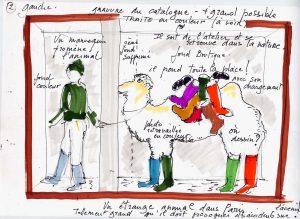 ② gauche
oeuvre du catalogue - + grand possible
Traité en couleur
Un mannequin
promène
l'animal
fond couleur
fond
supprimé
Il sort de l'atelier et se
retrouve dans la nature
fond Boutique
il prend toute la place!
avec son
changement
photo
retravaillée
en couleur
on
dessin?
Un étrange animal dans Paris
tellement grand qu'il doit provoquer